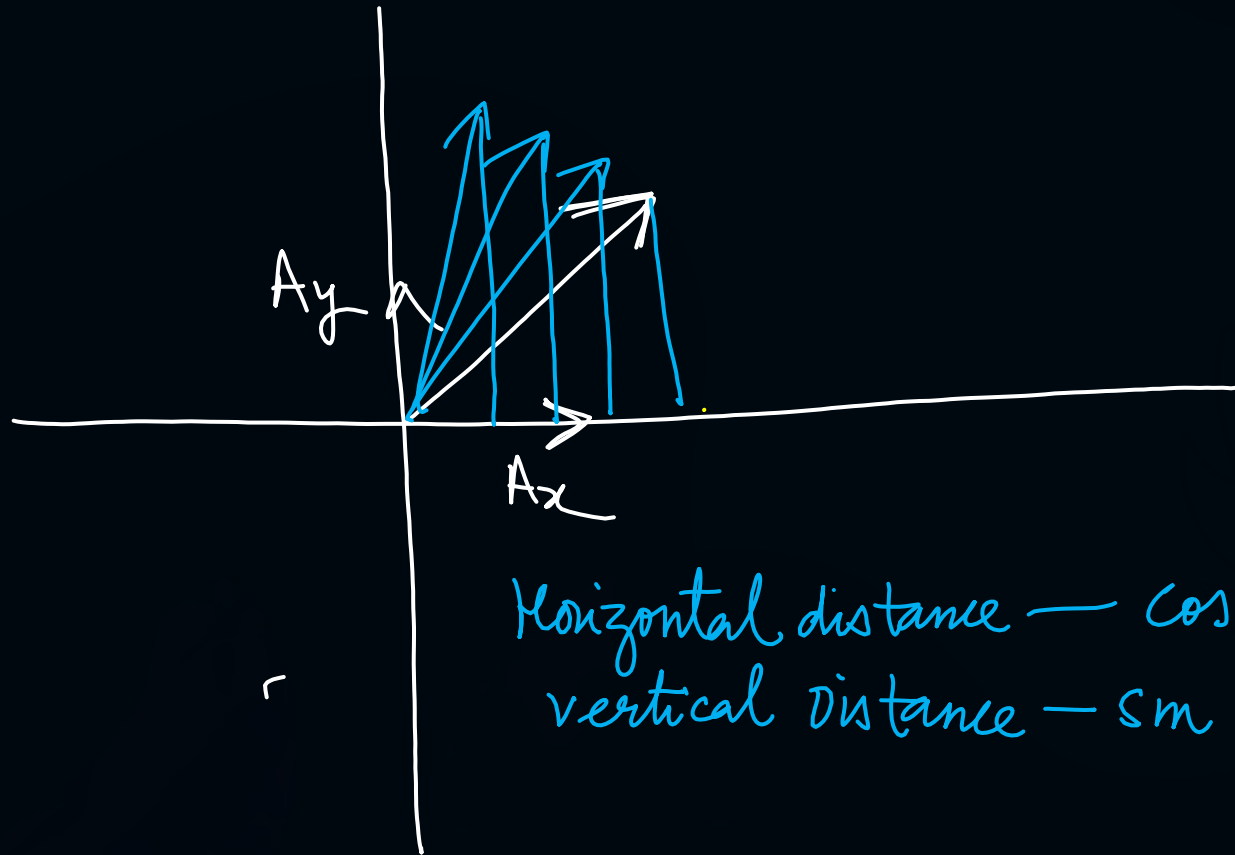 Ay
Ax
Horizontal distance — cos
vertical Distance — sin